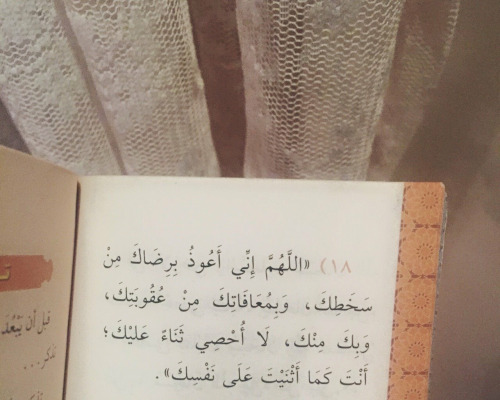 ١٨) «اللَّهُمَّ إِنِّي أَعُوذُ بِرِضَاكَ مِنْ
سَخَطِكَ، وَبِمُعَافَاتِكَ مِنْ عُقُوبَتِكَ،
وَبِكَ مِنْكَ، لَا أُحْصِي ثَنَاءً عَلَيْكَ؛
أَنْتَ كَمَا أَثْنَيْتَ عَلَى نَفْسِكَ».
قبل أن يَبْعُدَ